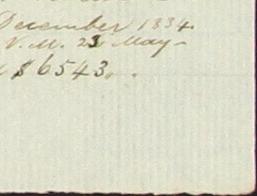 December 1834.
V. M. 23 May
$6543.